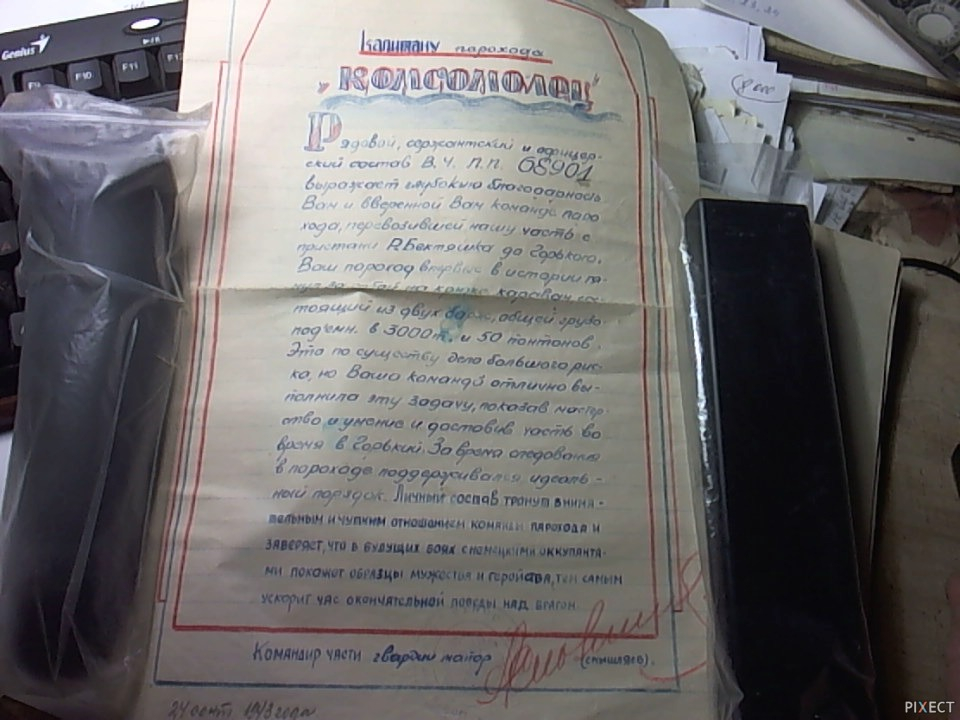 Genius
F9 F10 F11
Капитану парохода
"КОМСОМОЛЕЦ"
Рядовой, сержантский и офицер-
ский состав В. Ч. П. П. 68901
выражает глубокую благодарность
Вам и вверенной Вам команде паро
хода, перевозившей нашу часть с
пристани Р.Бектяшка до Горького.
Ваш пароход впервые в истории
на караван сос-
тоящий из двух барж, общей грузо-
под'емн. в 3000т. и 50 понтонов.
Это по существу дело большого рис-
ка, но Ваша команда отлично вы-
полнила эту задачу, показав мастер-
ство и умение и доставив часть во
время в Горький. За время следования
в пароходе поддерживался идеаль-
ный порядок. Личный состав тронут внима-
тельным и чутким отношением команды парохода и
заверяет, что в будущих боях с немецкими оккупанта-
ми покажет образцы мужества и геройства, тем самым
ускорит час окончательной победы над врагом
Командир части гвардии майор (Смышляев).
24 сент 1943 года.
PIXECT